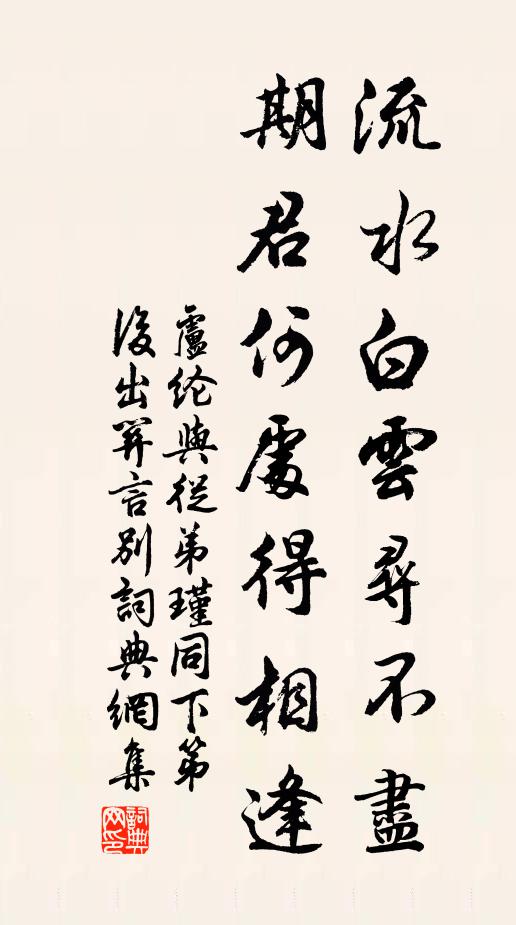 流水白雲尋不盡
期君何處得相逢
盧纶與從弟瑾同下第
後出關言別詞典網集
詞典
网印